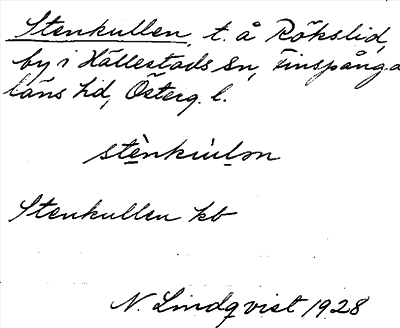 Stenkullen, t. å Rökslid,
by i Hällestads sn, Finspånga
läns hd, Österg. l.
stènkùlən
Stenkullen kb
N. Lindqvist 1928